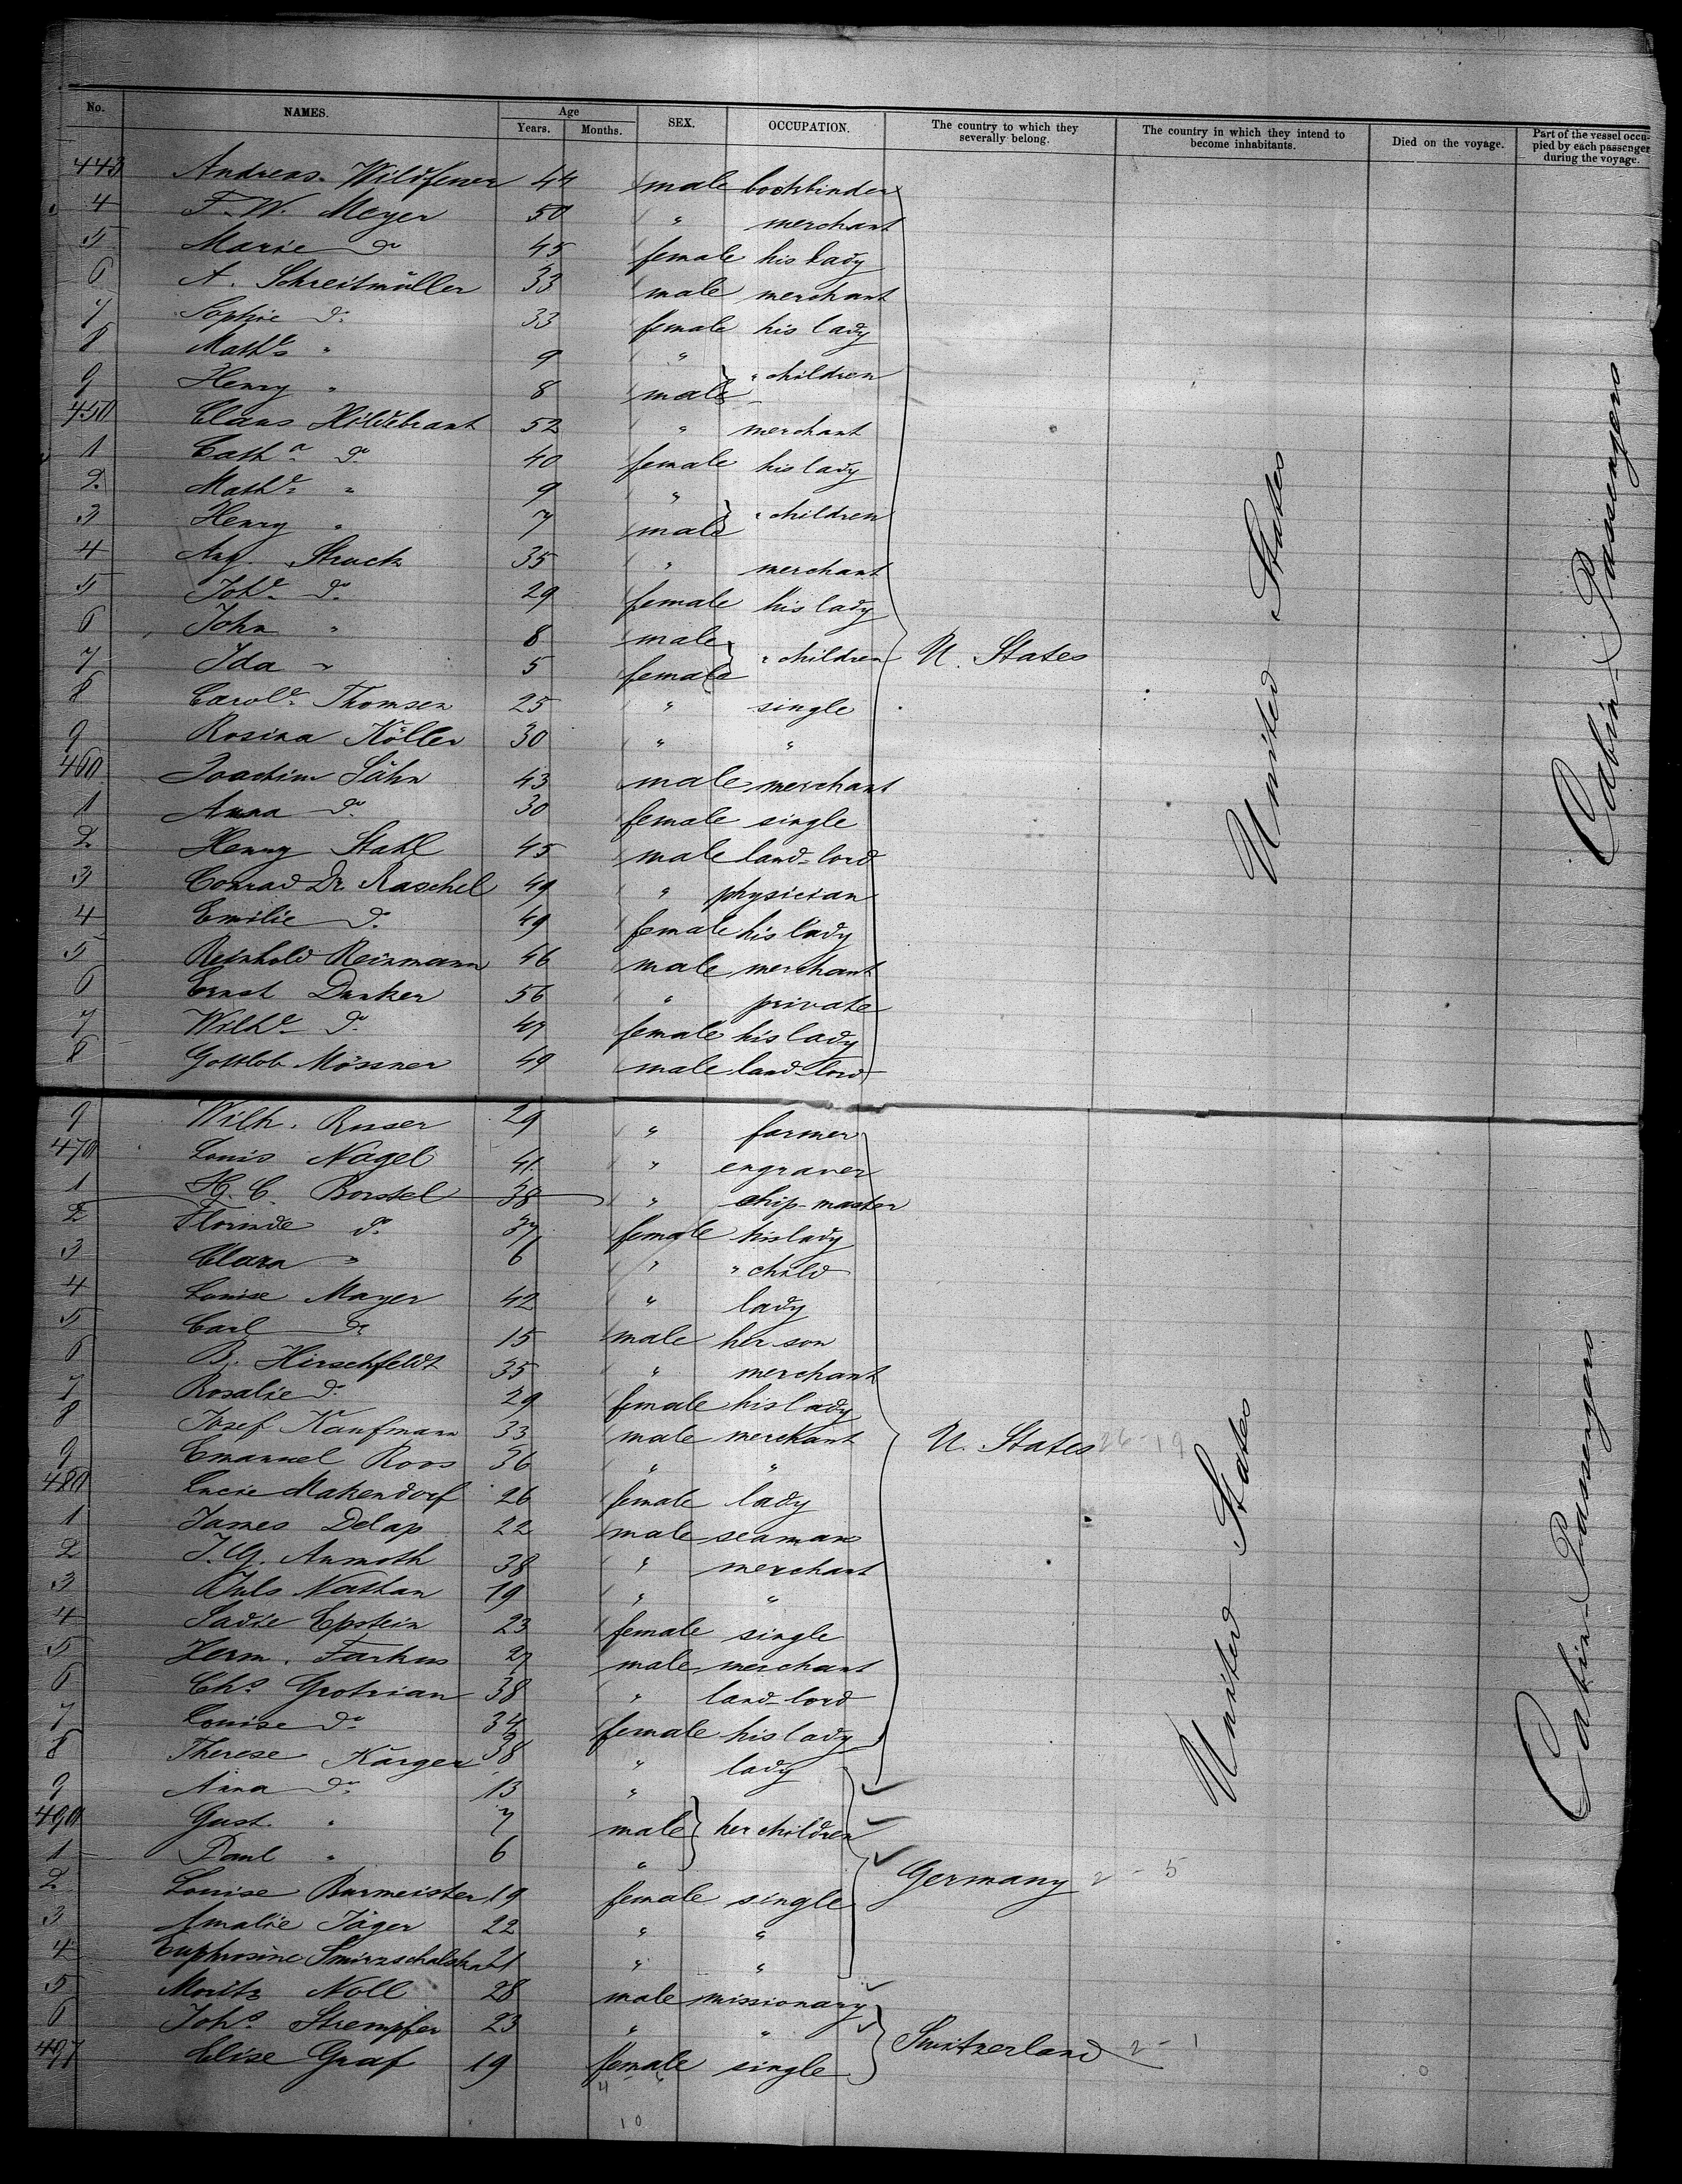 No. NAMES. Age Years. Months. SEX. OCCUPATION. The country to which they severally belong. The country in which they intend to become inhabitants. Died on the voyage. Part of the vessel occupied by each passenger during the voyage.
443 Andreas Wildfeuer 44 male bookbinder
4 F. W. Meyer 50 " merchant
5 Marie do 45 female his lady
6 A. Schreitmüller 33 male merchant
7 Sophie do 33 female his lady
8 Mathe " 9 " " children
9 Henry " 8 male
450 Claus Hildebrant 52 " merchant
1 Catha do 40 female his lady
2 Mathe " 9 " " children
3 Henry " 7 male
4 Aug. Struck 35 " merchant
5 Johe do 29 female his lady
6 John " 8 male " children
7 Ida " 5 female U. States
8 Carole Thomsen 25 " single
9 Rosina Köller 30 " "
460 Joachim Sähn 43 male merchant
1 Anna do 30 female single
2 Henry Stahl 45 male land-lord
3 Conrad Dr. Raschel 49 " physician
4 Emilie do 49 female his lady
5 Reinhold Reinmann 46 male merchant
6 Ernst Dunker 56 " private
7 Wilhe do 47 female his lady
8 Gottlob Mössner 49 male land-lord
United States
Cabin-Passengers
9 Wilh. Ruser 29 " farmer
470 Louis Nagel 41 " engraver
1 H. C. Borstel 38 " ship-master
2 Florinde do 37 female his lady
3 Clara " 6 " " child
4 Louise Mayer 42 " lady
5 Carl do 15 male her son
6 B. Hirschfeldt 35 " merchant
7 Rosalie do 29 female his lady
8 Josef Kaufmann 33 male merchant
9 Emanuel Roos 36 " " U. States 26-19
480 Lucie Makendorf 26 female lady
1 James Delap 22 male seaman
2 J. G. Anmoth 38 " merchant
3 Juls Nathan 19 " "
4 Sadie Epstein 23 female single
5 Herm. Farkus 27 male merchant
6 Chs Grotrian 38 " land-lord
7 Louise do 34 female his lady
8 Therese Karger 38 " lady
9 Anna do 13 "
490 Gust. " 7 male her children
1 Paul " 6 "
2 Louise Burmeister 19 female single Germany 2-5
3 Amalie Jäger 22 " "
4 Euphrosine 21 " "
5 Moritz Noll 28 male missionary
6 Johs Strempfer 23 " "
497 Elise Graf 19 female single Switzerland 2-1
United States
Cabin-Passengers
10